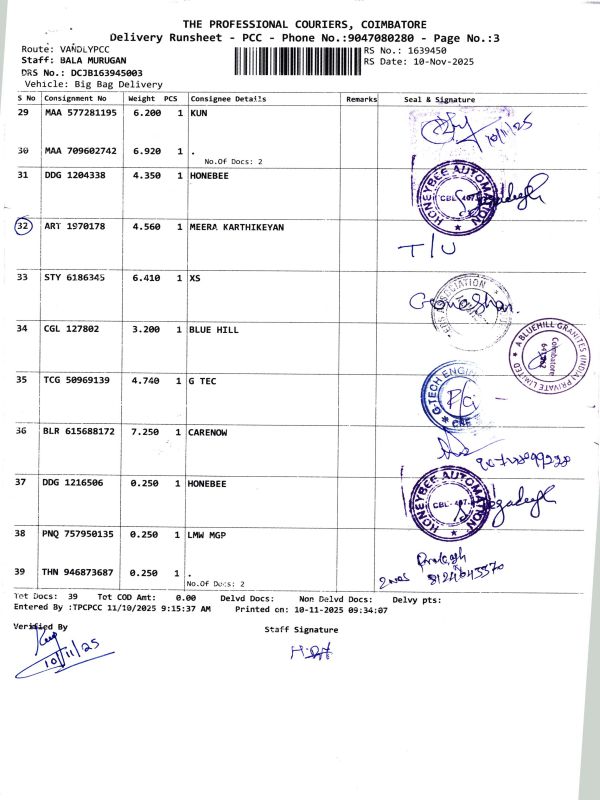 THE PROFESSIONAL COURIERS, COIMBATORE
Delivery Runsheet - PCC - Phone No.:9047080280 - Page No.:3
Route: VANDLYPCC
RS No.: 1639450
Staff: BALA MURUGAN
RS Date: 10-Nov-2025
DRS No.: DCJB163945003
Vehicle: Big Bag Delivery
S No Consignment No Weight PCS Consignee Details Remarks Seal & Signature
29 MAA 577281195 6.200 1 KUN
10/11/25
30 MAA 709602742 6.920 1 .
No.Of Docs: 2
31 DDG 1204338 4.350 1 HONEBEE
HONEYBEE AUTOMATION
32 ART 1970178 4.560 1 MEERA KARTHIKEYAN
T/U
33 STY 6186345 6.410 1 XS
34 CGL 127802 3.200 1 BLUE HILL
A BLUEHILL GRANITES (INDIA) PRIVATE LIMITED
Coimbatore
35 TCG 50969139 4.740 1 G TEC
G-TECH ENGIN
36 BLR 615688172 7.250 1 CARENOW
37 DDG 1216506 0.250 1 HONEBEE
HONEYBEE AUTOMATION
38 PNQ 757950135 0.250 1 LMW MGP
39 THN 946873687 0.250 1 .
No.Of Docs: 2
Tot Docs: 39 Tot COD Amt: 0.00 Delvd Docs: Non Delvd Docs: Delvy pts:
Entered By :TPCPCC 11/10/2025 9:15:37 AM Printed on: 10-11-2025 09:34:07
Verified By
Staff Signature
10/11/25